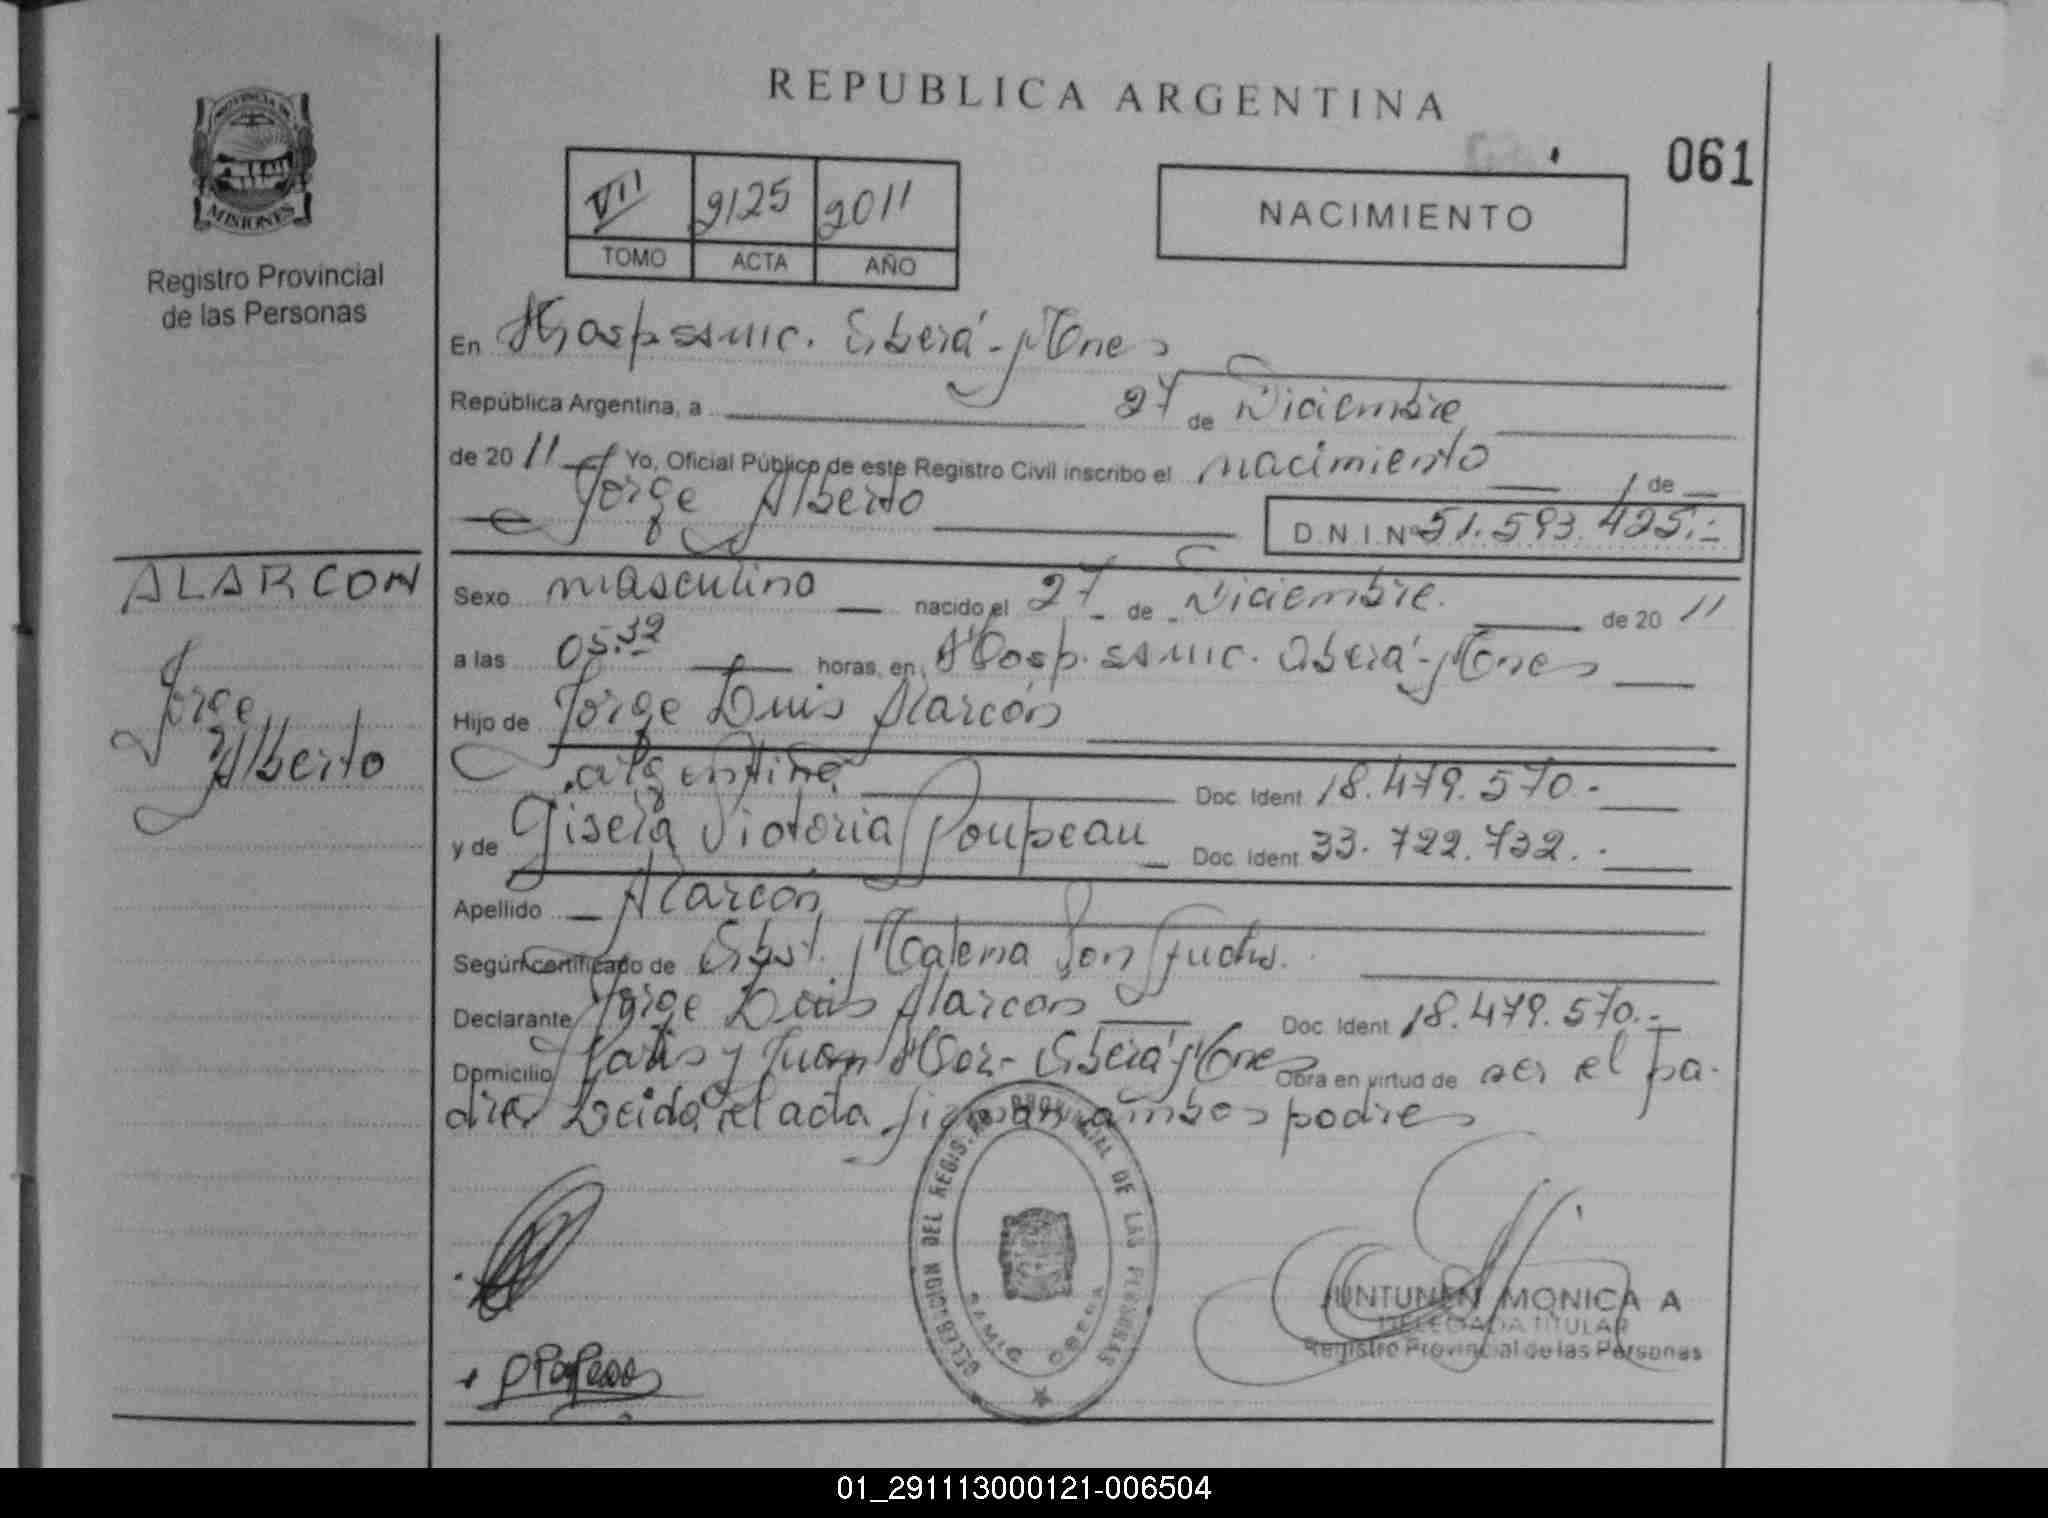 REPUBLICA ARGENTINA
061
PROVINCIA DE
MISIONES
Registro Provincial
de las Personas
VII 2125 2011
TOMO ACTA AÑO
NACIMIENTO
En Hosp. SAMIC. Oberá - Mnes
República Argentina, a 27 de Diciembre
de 20 11 Yo, Oficial Público de este Registro Civil inscribo el nacimiento de
Jorge Alberto D.N.I. Nº 51.593.425.-
ALARCON
Jorge
Alberto
Sexo masculino nacido el 27 de Diciembre. de 20 11
a las 05.32 horas, en Hosp. SAMIC. Oberá - Mnes
Hijo de Jorge Luis Alarcón
argentino Doc. Ident 18.479.570.-
y de Gisela Victoria Poupeau Doc. Ident 33.722.732.-
Apellido Alarcón
Según certificado de Obst. Malena Son Fuchs.
Declarante Jorge Luis Alarcon Doc. Ident 18.479.570.-
Domicilio y Juan Oberá Mnes Obra en virtud de ser el pa-
dre. Leida el acta firman ambos padres
DELEGACION DEL REGISTRO PROVINCIAL DE LAS PERSONAS
SAMIC OBERA
JUNTUNEN MONICA A
DELEGADA TITULAR
Registro Provincial de las Personas
01_291113000121-006504